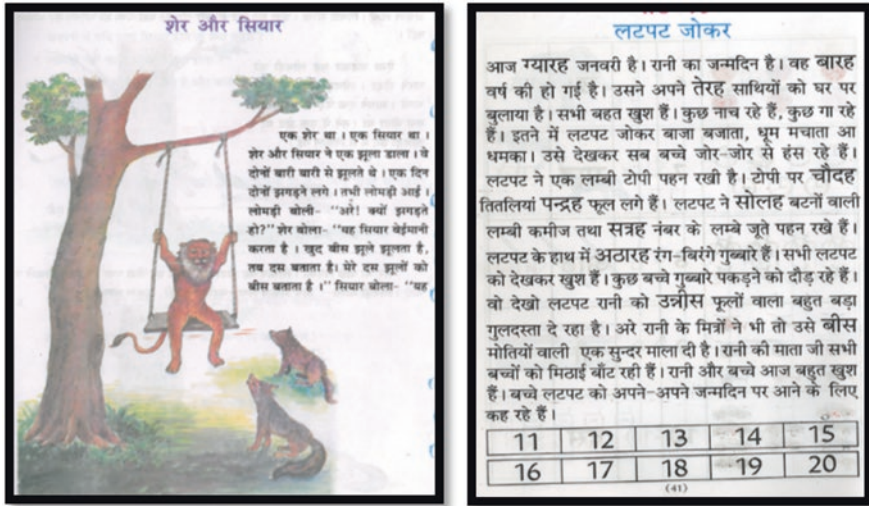 शेर और सियार
एक शेर था । एक सियार था ।
शेर और सियार ने एक झूला डाला । वे
दोनों बारी बारी से झूलते थे । एक दिन
दोनों झगड़ने लगे । तभी लोमड़ी आई ।
लोमड़ी बोली- ‘‘अरे! क्यों झगड़ते
हो?’’ शेर बोला- ‘‘यह सियार बेईमानी
करता है । खुद बीस झूले झूलता है,
तब दस बताता है। मेरे दस झूलों को
बीस बताता है ।’’ सियार बोला- ‘‘यह
लटपट जोकर
आज ग्यारह जनवरी है। रानी का जन्मदिन है। वह बारह
वर्ष की हो गई है। उसने अपने तेरह साथियों को घर पर
बुलाया है। सभी बहुत खुश हैं। कुछ नाच रहे हैं, कुछ गा रहे
हैं। इतने में लटपट जोकर बाजा बजाता, धूम मचाता आ
धमका। उसे देखकर सब बच्चे जोर-जोर से हंस रहे हैं।
लटपट ने एक लम्बी टोपी पहन रखी है। टोपी पर चौदह
तितलियां पन्द्रह फूल लगे हैं। लटपट ने सोलह बटनों वाली
लम्बी कमीज तथा सत्रह नंबर के लम्बे जूते पहन रखे हैं।
लटपट के हाथ में अठारह रंग-बिरंगे गुब्बारे हैं। सभी लटपट
को देखकर खुश हैं। कुछ बच्चे गुब्बारे पकड़ने को दौड़ रहे हैं।
वो देखो लटपट रानी को उन्नीस फूलों वाला बहुत बड़ा
गुलदस्ता दे रहा है। अरे रानी के मित्रों ने भी तो उसे बीस
मोतियों वाली एक सुन्दर माला दी है। रानी की माता जी सभी
बच्चों को मिठाई बाँट रही हैं। रानी और बच्चे आज बहुत खुश
हैं। बच्चे लटपट को अपने-अपने जन्मदिन पर आने के लिए
कह रहे हैं।
11 12 13 14 15
16 17 18 19 20
(41)